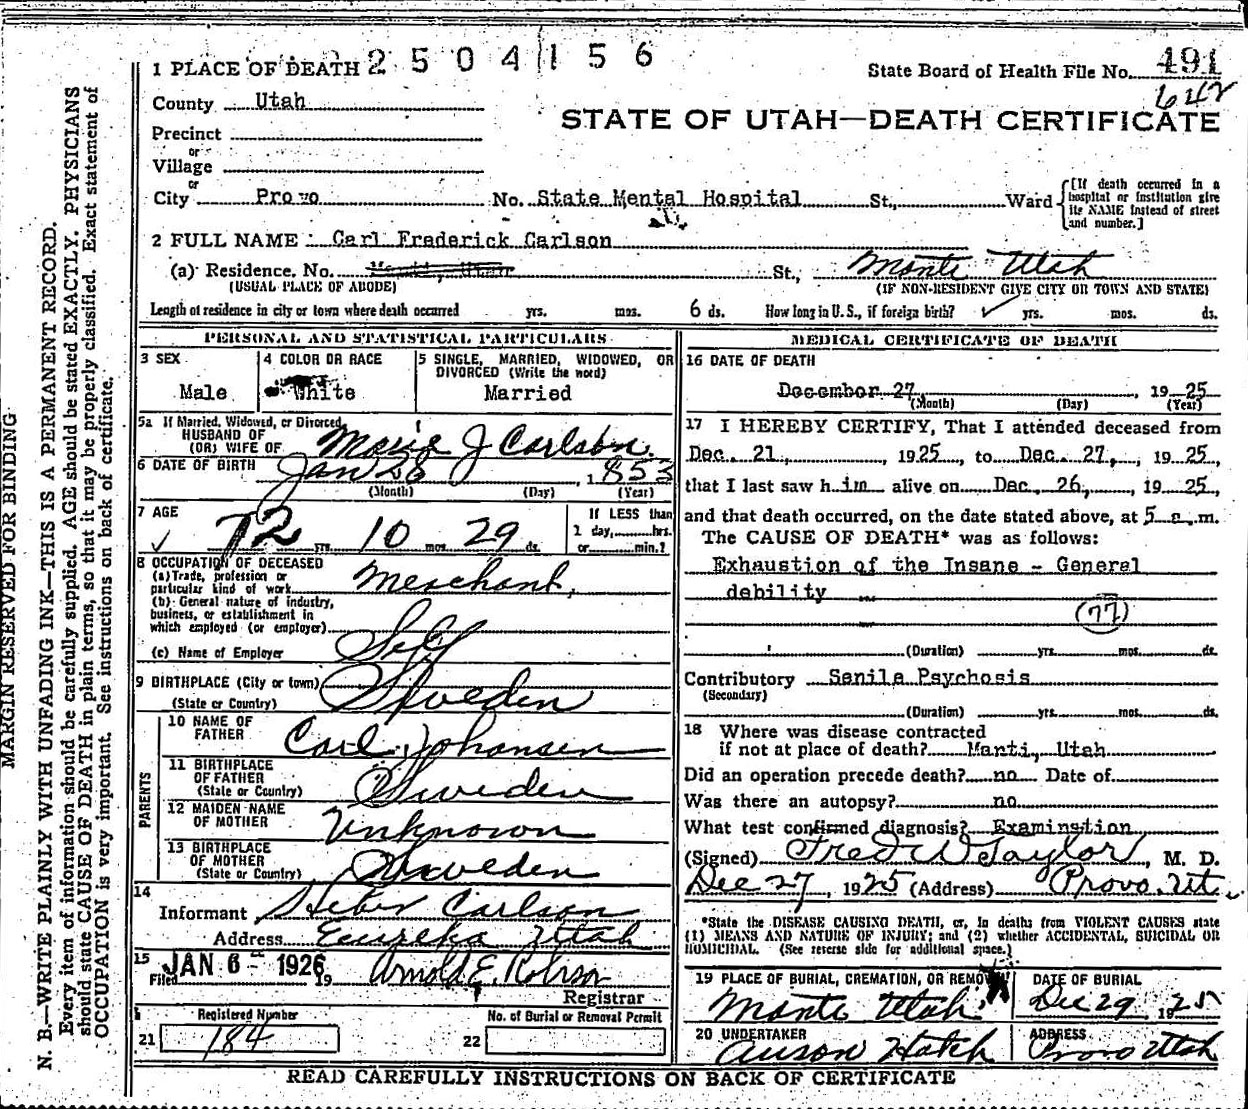 MARGIN RESERVED FOR BINDING
N. B.—WRITE PLAINLY WITH UNFADING INK—THIS IS A PERMANENT RECORD.
Every item of information should be carefully supplied. AGE should be stated EXACTLY. PHYSICIANS
should state CAUSE OF DEATH in plain terms, so that it may be properly classified. Exact statement of
OCCUPATION is very important. See instructions on back of certificate.
1 PLACE OF DEATH 2504156
State Board of Health File No. 491
642
County Utah
STATE OF UTAH—DEATH CERTIFICATE
Precinct
or
Village
or
City Provo No. State Mental Hospital St., Ward
[If death occurred in a
hospital or institution give
its NAME instead of street
and number.]
2 FULL NAME Carl Fraderick Carlson
(a) Residence. No. St., Monte Utah
(USUAL PLACE OF ABODE) (IF NON-RESIDENT GIVE CITY OR TOWN AND STATE)
Length of residence in city or town where death occurred yrs. mos. 6 ds. How long in U.S., if foreign birth? ✓ yrs. mos. ds.
PERSONAL AND STATISTICAL PARTICULARS
3 SEX
Male
4 COLOR OR RACE
White
5 SINGLE, MARRIED, WIDOWED, OR
DIVORCED (Write the word)
Married
5a If Married, Widowed, or Divorced
HUSBAND OF
(OR) WIFE OF Marie J Carlson.
6 DATE OF BIRTH Jan 28, 1853
(Month) (Day) (Year)
7 AGE
✓ 72 yrs. 10 mos. 29 ds.
If LESS than
1 day, hrs.
or min.?
8 OCCUPATION OF DECEASED
(a) Trade, profession or
particular kind of work Merchant,
(b) General nature of industry,
business, or establishment in
which employed (or employer)
(c) Name of Employer Self
9 BIRTHPLACE (City or town)
(State or Country) Sweden
PARENTS
10 NAME OF
FATHER Carl Johansen
11 BIRTHPLACE
OF FATHER
(State or Country) Sweden
12 MAIDEN NAME
OF MOTHER Unknown
13 BIRTHPLACE
OF MOTHER
(State or Country) Sweden
14
Informant Heber Carlson
Address Eureka Utah
15
Filed JAN 6 1926 19 Arnold E. Robison
Registrar
Registered Number
21 184
No. of Burial or Removal Permit
22
MEDICAL CERTIFICATE OF DEATH
16 DATE OF DEATH
December 27, 1925
(Month) (Day) (Year)
17 I HEREBY CERTIFY, That I attended deceased from
Dec. 21, 1925, to Dec. 27, 1925,
that I last saw him alive on Dec. 26, 1925,
and that death occurred, on the date stated above, at 5 a.m.
The CAUSE OF DEATH* was as follows:
Exhaustion of the Insane - General
debility
(77)
(Duration) yrs. mos. ds.
Contributory Senile Psychosis
(Secondary)
(Duration) yrs. mos. ds.
18 Where was disease contracted
if not at place of death? Manti, Utah
Did an operation precede death? no Date of
Was there an autopsy? no
What test confirmed diagnosis? Examination
(Signed) Fred W Taylor, M. D.
Dec 27, 1925 (Address) Provo. Ut.
*State the DISEASE CAUSING DEATH, or, in deaths from VIOLENT CAUSES state
(1) MEANS AND NATURE OF INJURY; and (2) whether ACCIDENTAL, SUICIDAL OR
HOMICIDAL. (See reverse side for additional space.)
19 PLACE OF BURIAL, CREMATION, OR REMOVAL
Monte Utah
DATE OF BURIAL
Dec 29 1925
20 UNDERTAKER
Anson Hatch
ADDRESS
Provo Utah
READ CAREFULLY INSTRUCTIONS ON BACK OF CERTIFICATE